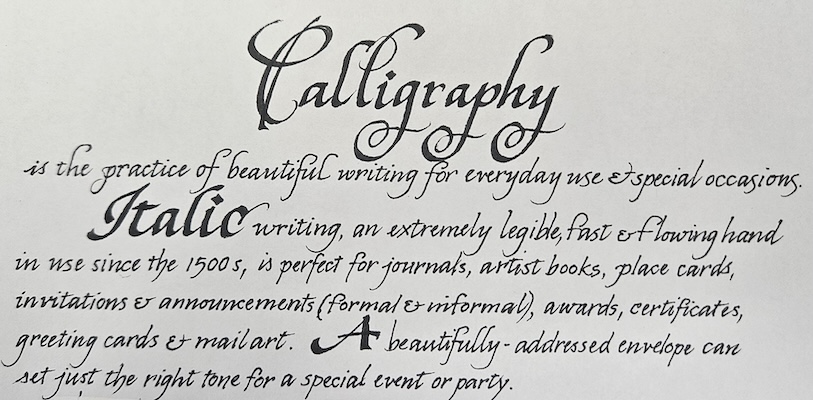 Calligraphy
is the practice of beautiful writing for everyday use & special occasions.
Italic writing, an extremely legible, fast & flowing hand
in use since the 1500s, is perfect for journals, artist books, place cards,
invitations & announcements (formal & informal), awards, certificates,
greeting cards & mail art. A beautifully-addressed envelope can
set just the right tone for a special event or party.